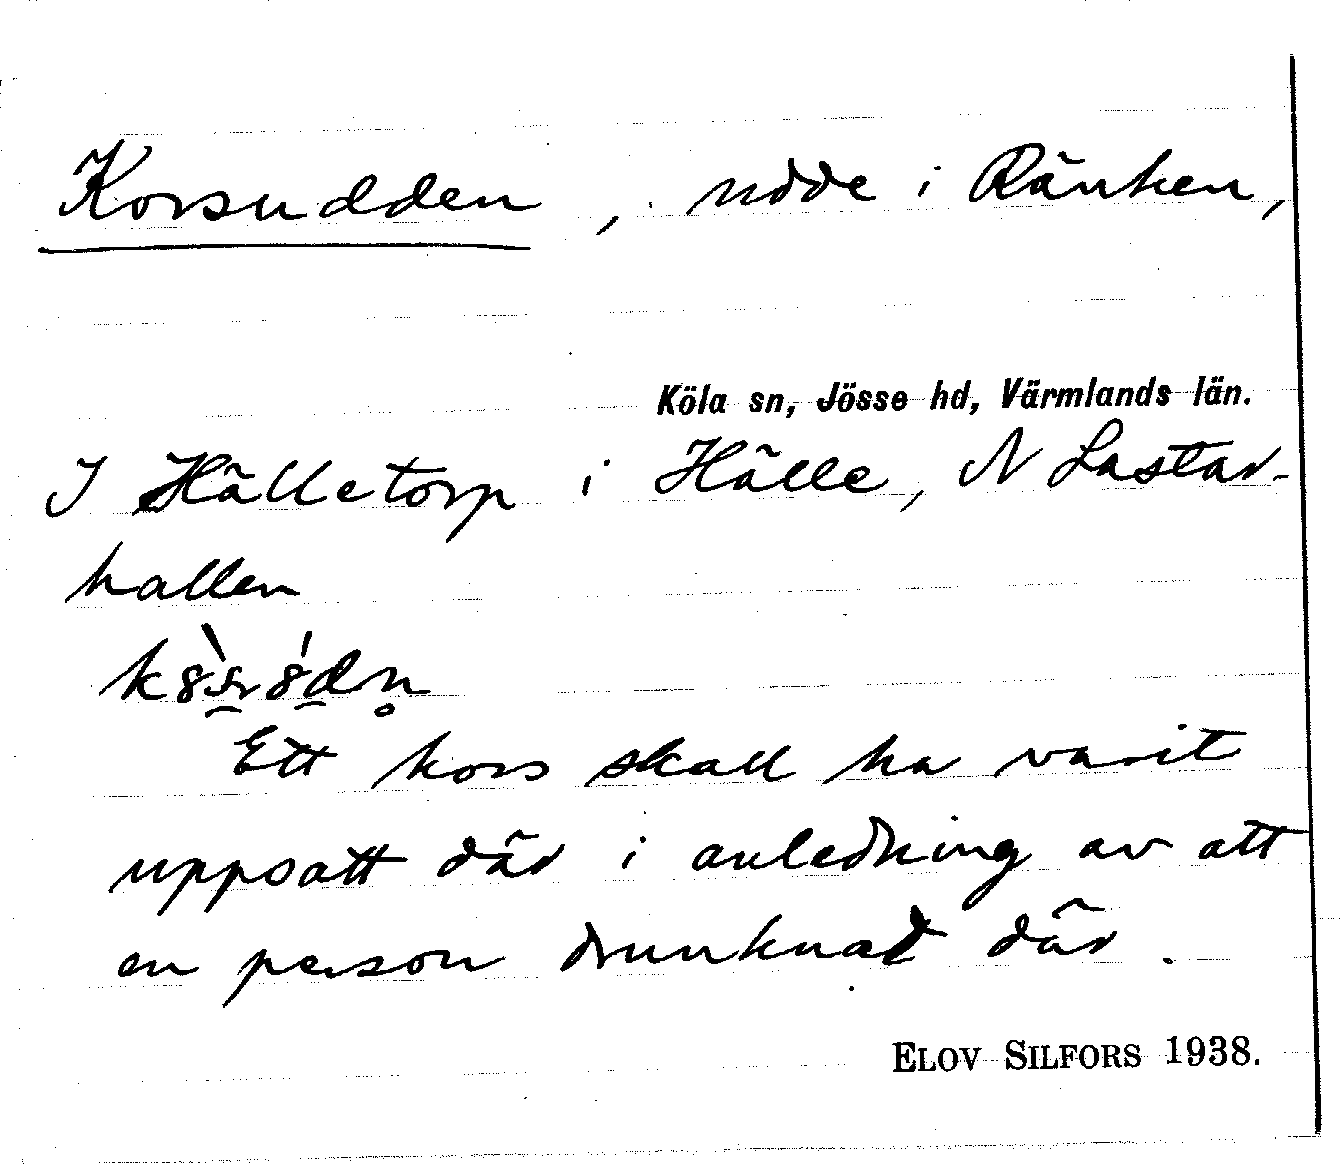 Korsudden, udde i Ränken,
Köla sn, Jösse hd, Värmlands län.
I Hälletorp i Hälle, N Lastar-
hallen
Ett kors skall ha varit
uppsatt där i anledning av att
en person drunknat där.
ELOV SILFORS 1938.